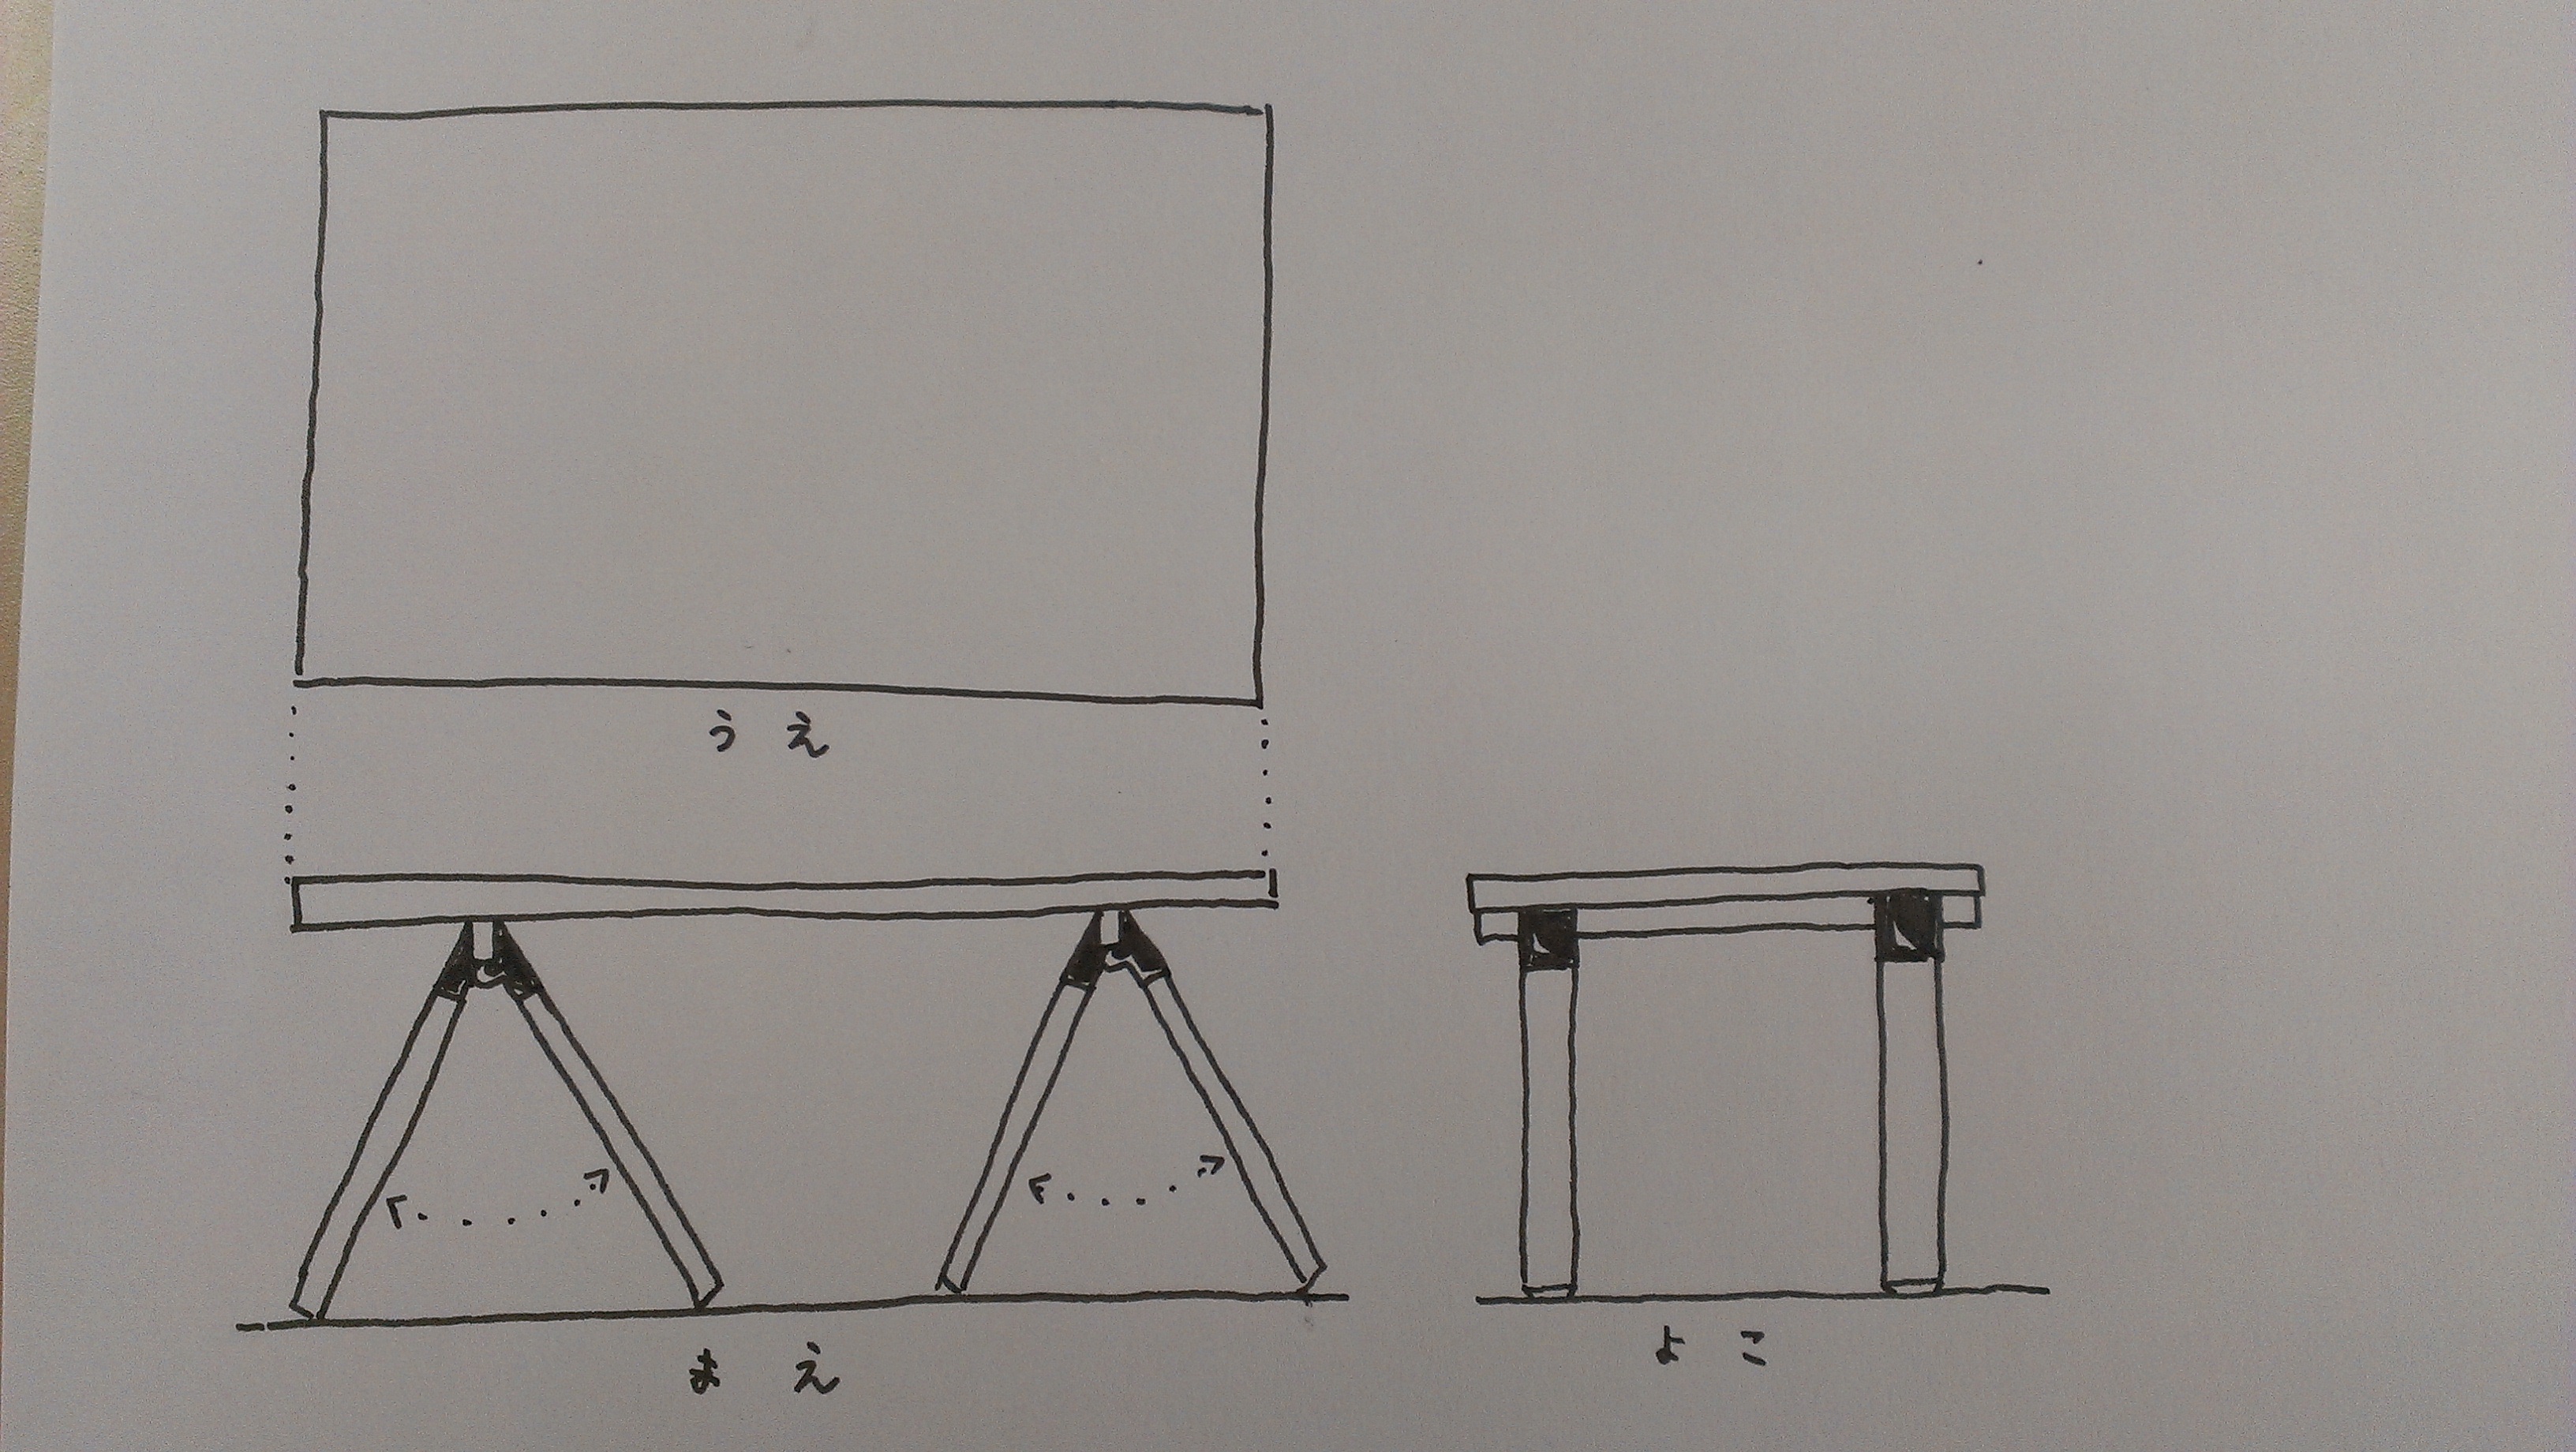 うえ
まえ
よこ